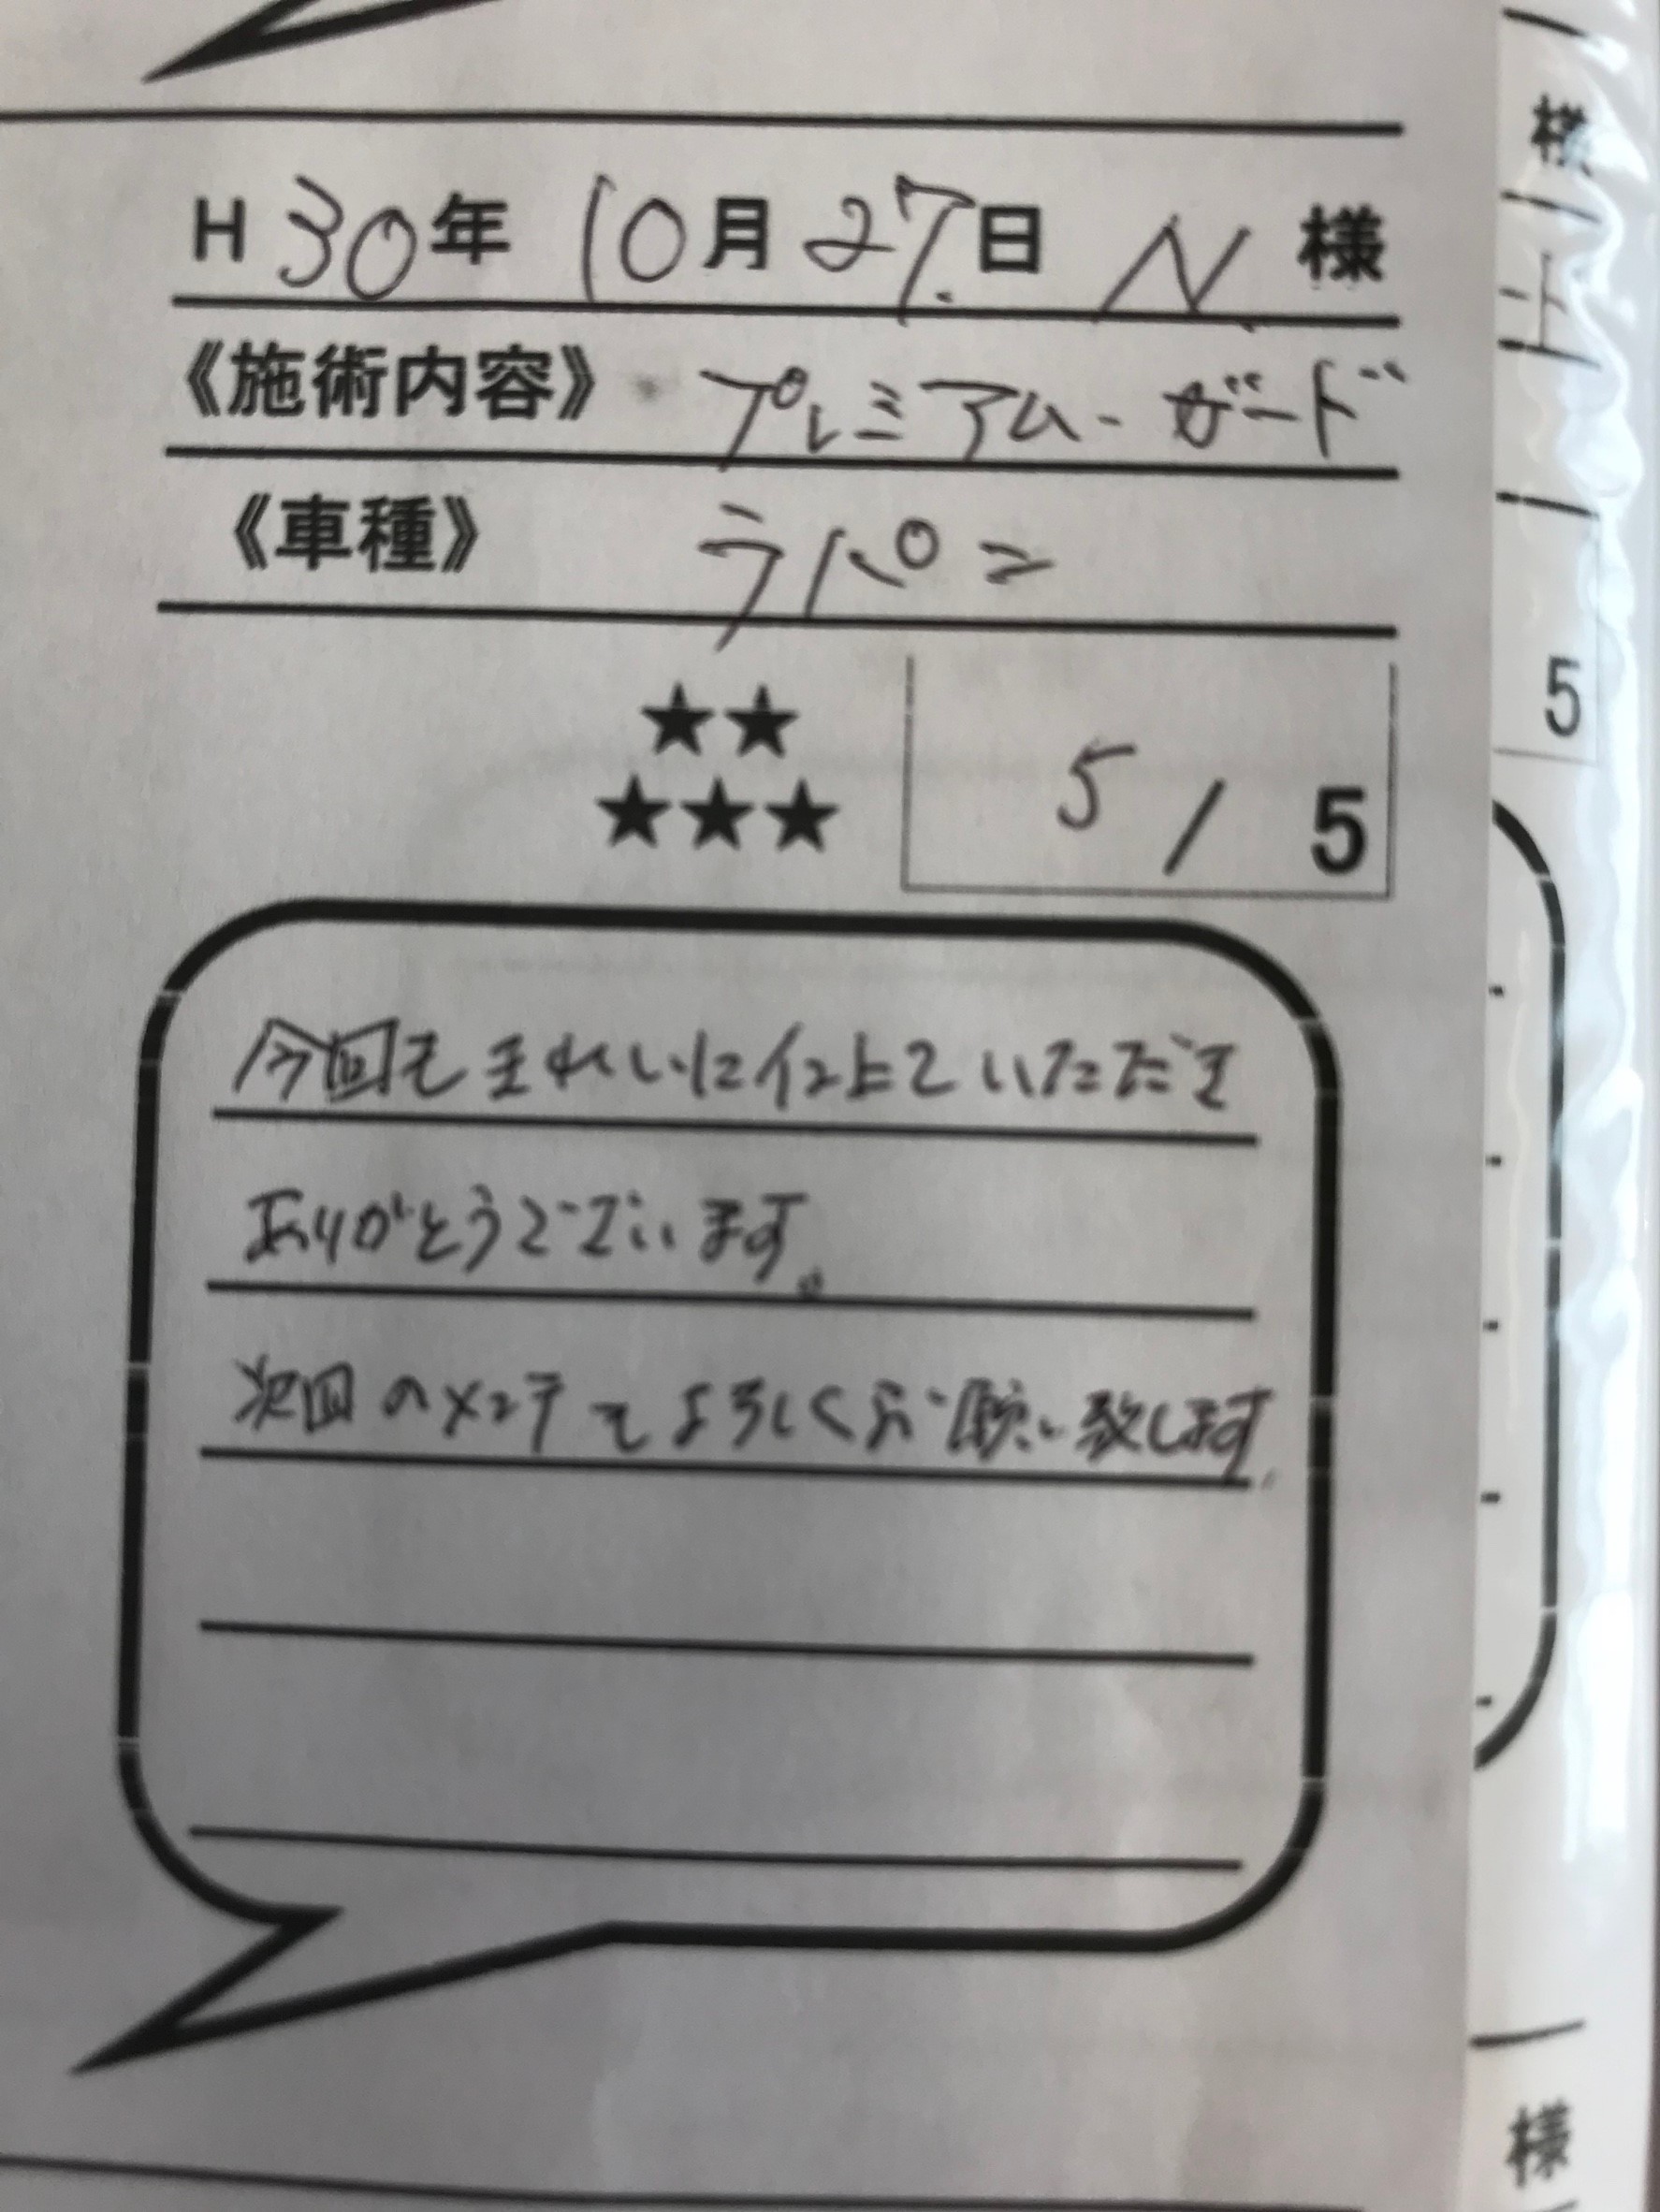 H 30年 10月 27日 N. 様
《施術内容》 プレミアム・ガード
《車種》 ラパン
★★
★★★
5 / 5
今回もきれいに仕上ていただき
ありがとうございます。
次回のメンテもよろしくお願い致します。
様
5
様